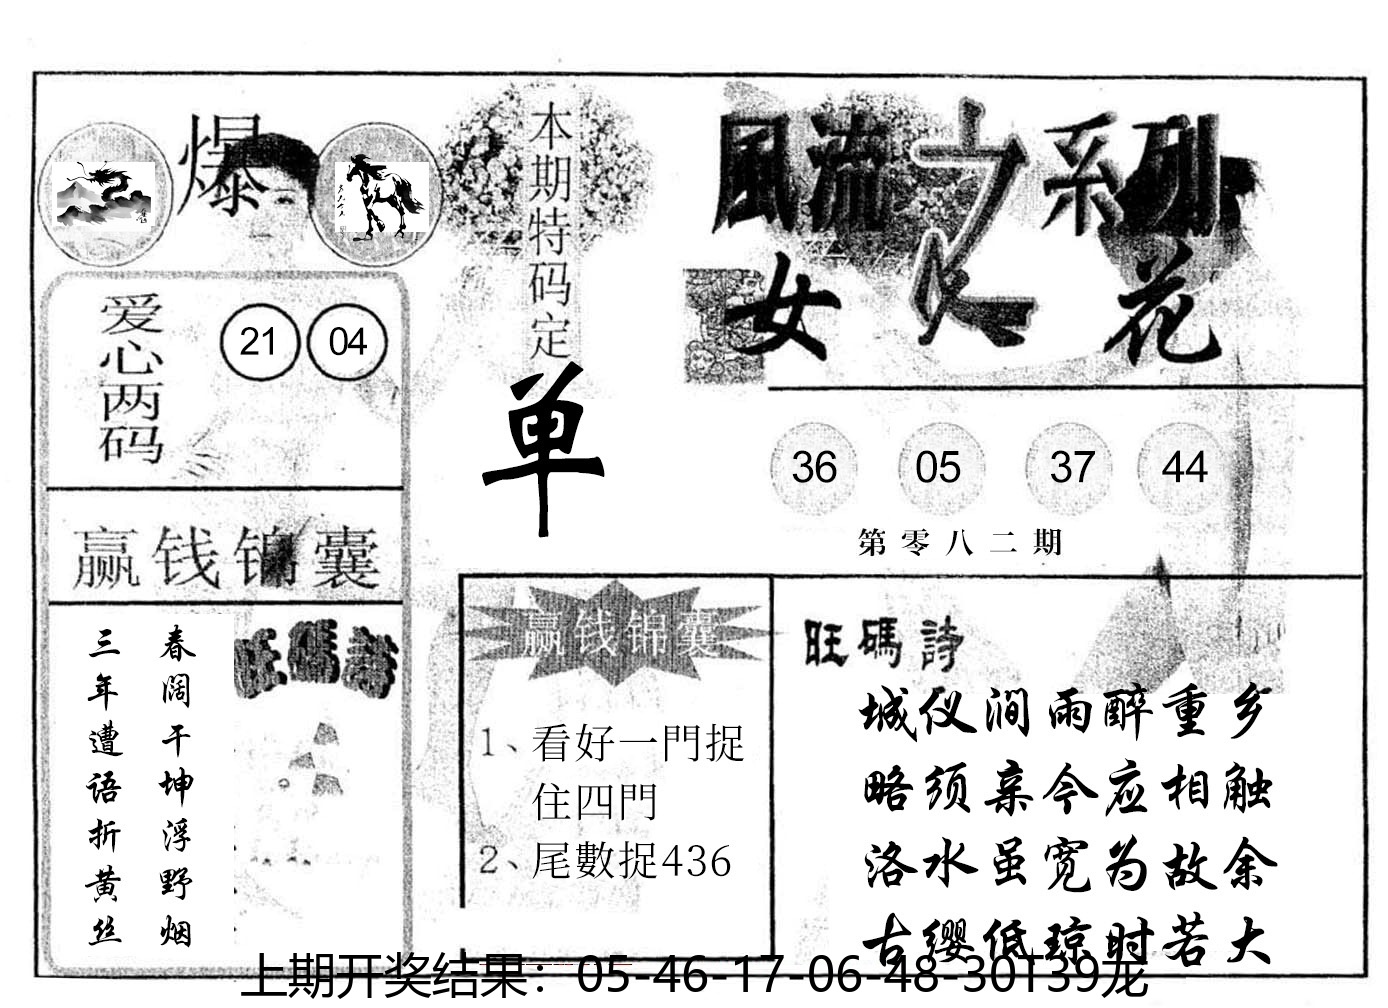 爆
本期特码定
单
風流之系列
女人花
爱心两码
21 04
36 05 37 44
第零八二期
赢钱锦囊
春阔干坤浮野烟
三年遭语折黄丝
旺碼詩
赢钱锦囊
1、看好一門捉
住四門
2、尾數捉436
旺碼詩
城仪涧雨醉重乡
略须亲今应相触
洛水虽宽为故余
古缨低琼时若大
上期开奖结果：05-46-17-06-48-30T39龙